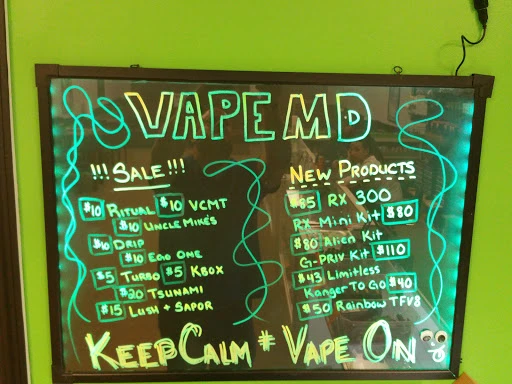 VAPE M.D
!!! SALE!!!
$10 RITUAL $10 VCMT
$10 UNCLE MIKE'S
$10 DRIP
$10 EGO ONE
$5 TURBO $5 KBOX
$20 TSUNAMI
$15 LUSH + SAPOR
NEW PRODUCTS
$85 RX 300
RX MINI KIT $80
$80 ALIEN KIT
G-PRIV KIT $110
$43 LIMITLESS
KANGER TO GO $40
$50 RAINBOW TFV8
KEEP CALM # VAPE ON